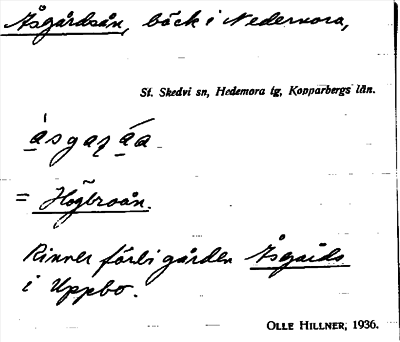 Åsgårdsån, bäck i Nedernora,
St. Skedvi sn, Hedemora tg, Kopparbergs län.
= Högbroån.
Rinner förbi gården Åsgårds
i Uppbo.
OLLE HILLNER, 1936.